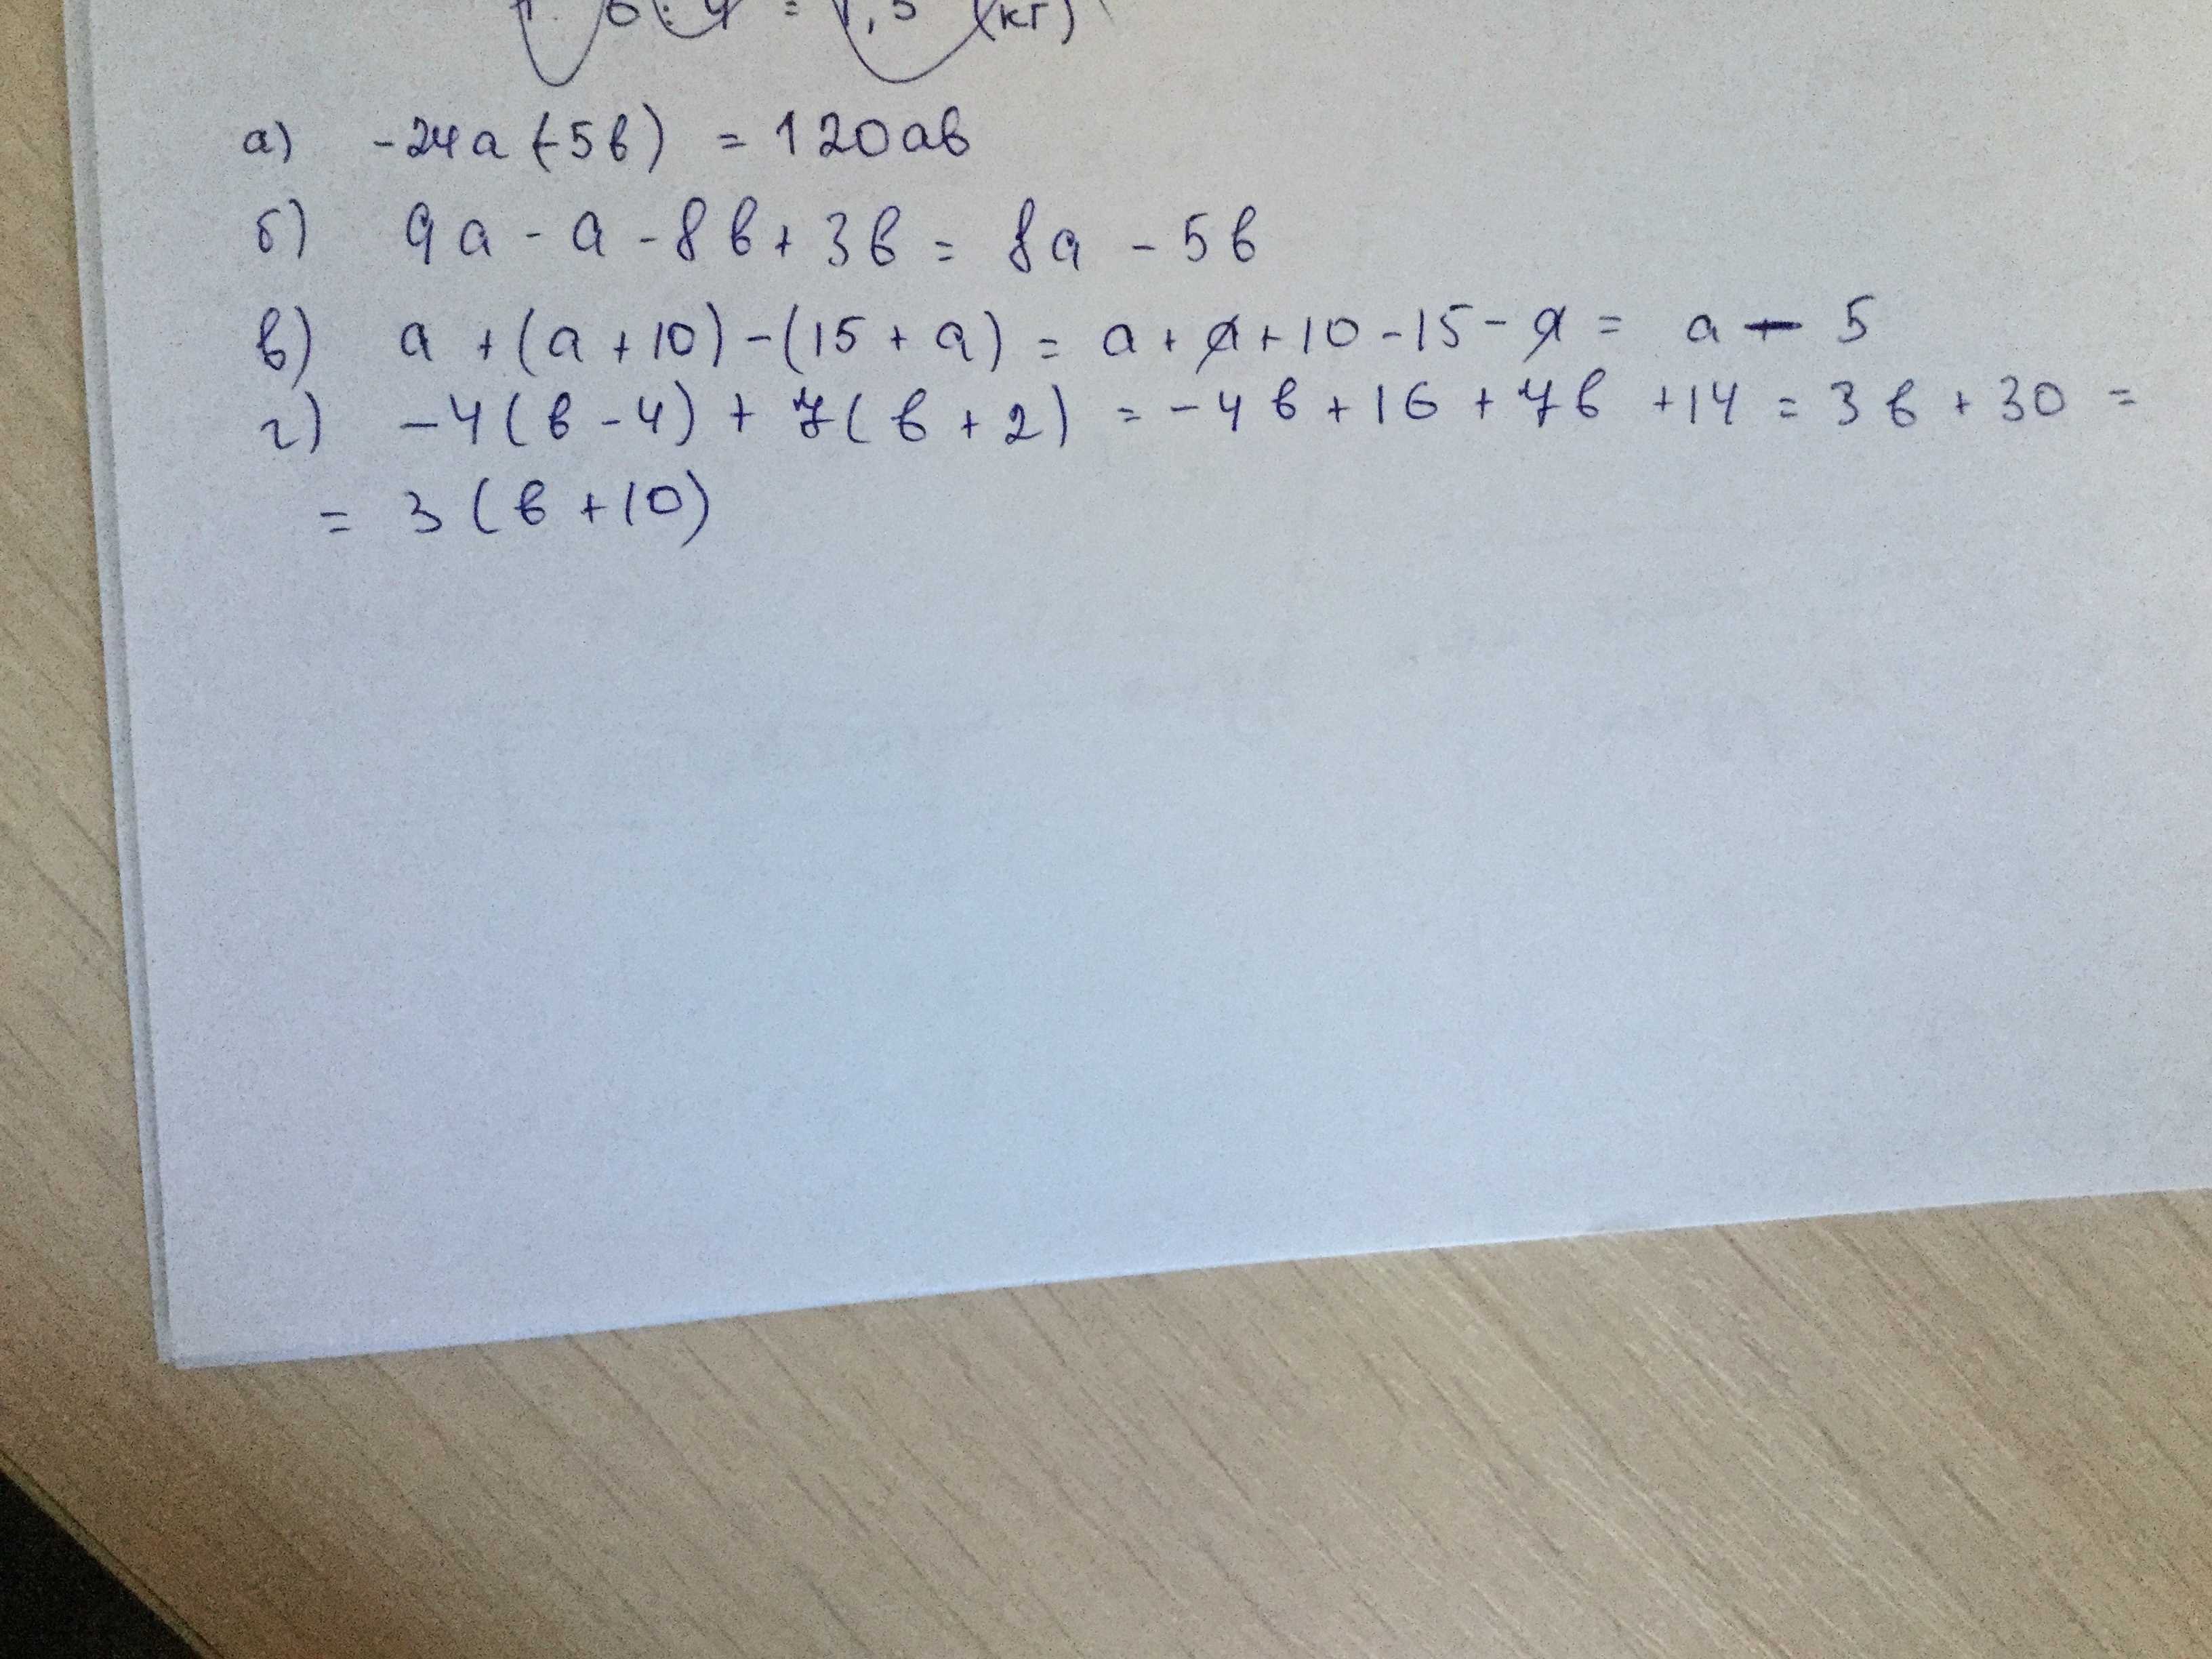 6 : 4 = 1,5 (кг)
а) -24а (-5в) = 120ав
б) 9а - а - 8в + 3в = 8а - 5в
в) а + (а + 10) - (15 + а) = а + а + 10 - 15 - а = а - 5
г) -4(в - 4) + 7(в + 2) = -4в + 16 + 7в + 14 = 3в + 30 =
= 3(в + 10)